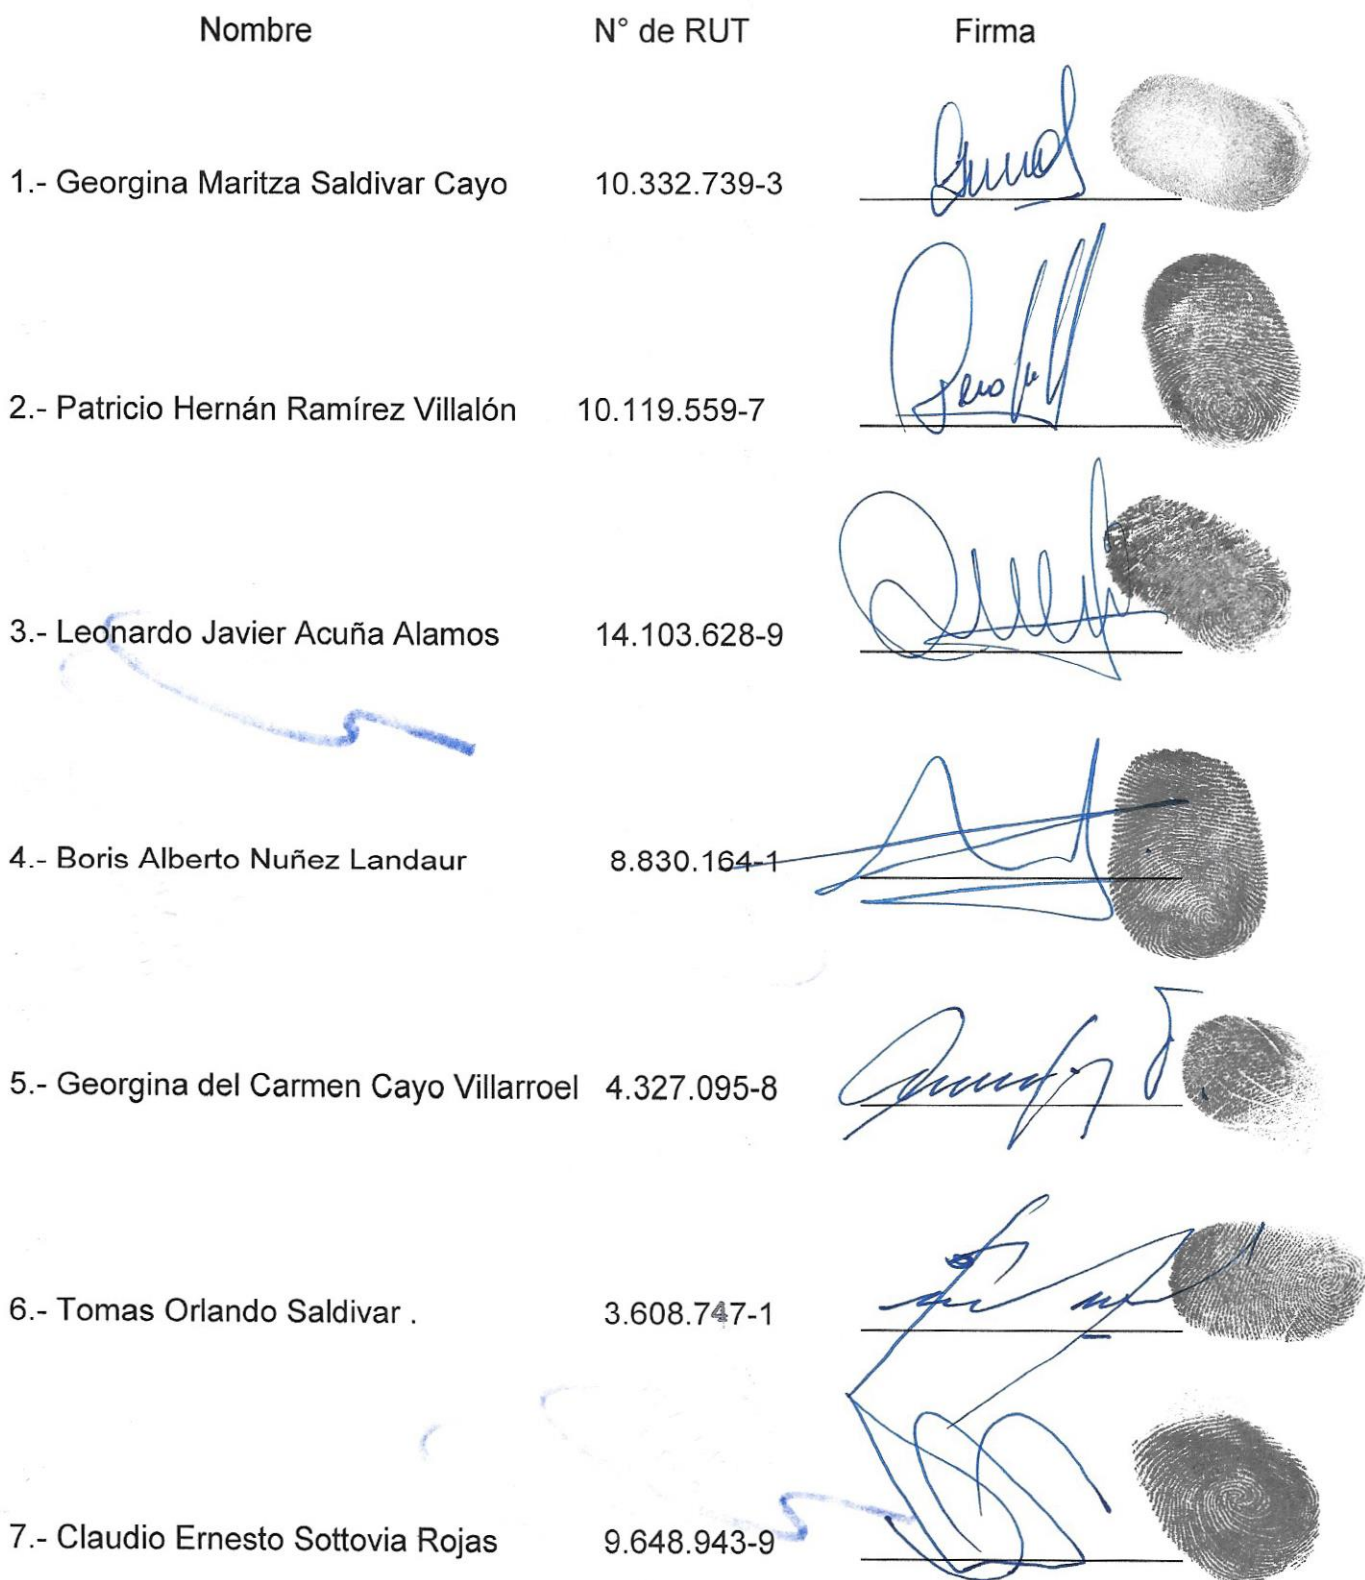 Nombre N° de RUT Firma
1.- Georgina Maritza Saldivar Cayo 10.332.739-3
2.- Patricio Hernán Ramírez Villalón 10.119.559-7
3.- Leonardo Javier Acuña Alamos 14.103.628-9
4.- Boris Alberto Nuñez Landaur 8.830.164-1
5.- Georgina del Carmen Cayo Villarroel 4.327.095-8
6.- Tomas Orlando Saldivar . 3.608.747-1
7.- Claudio Ernesto Sottovia Rojas 9.648.943-9